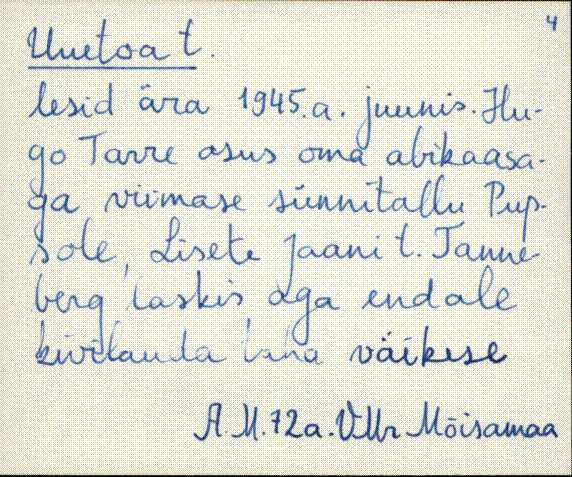 4
Uuetoa t.
lesid ära 1945.a. juunis. Hu-
go Tarre asus oma abikaasa-
ga viimase sünnitallu Pup-
sole, Lisete Jaani t. Tanne-
berg laskis aga endale
kivilauda taha väikese
A.M.72a. VMr Mõisamaa